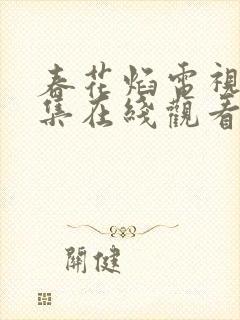 春花焰電視
集在綫觀看
關健